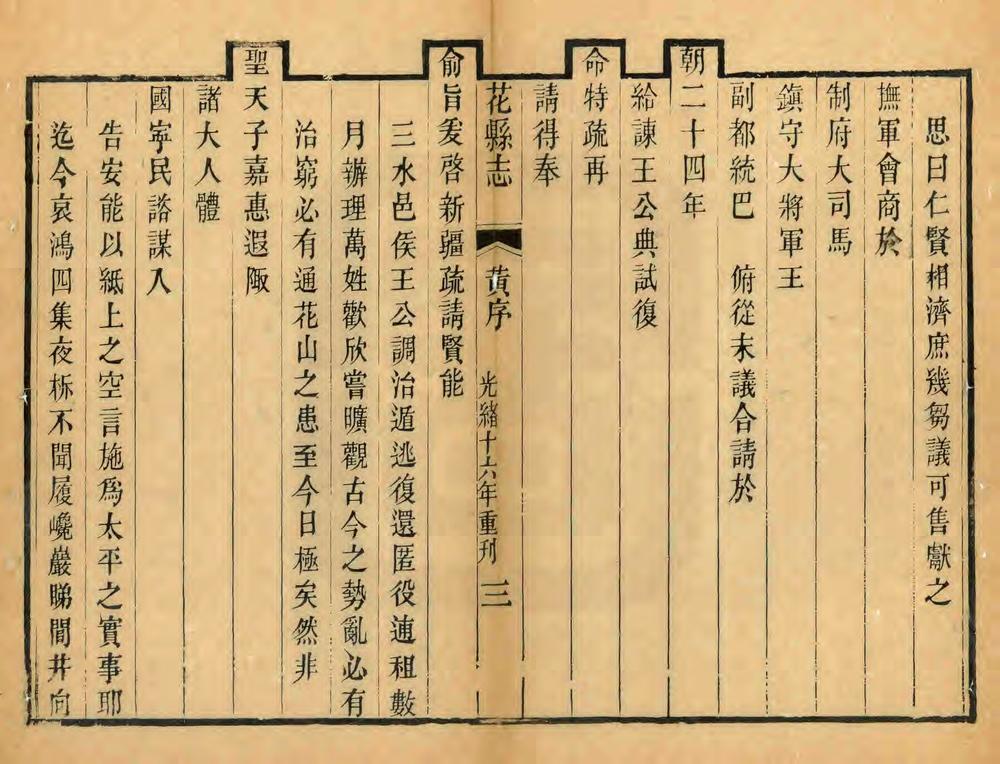 思曰仁賢相濟庶幾芻議可售獻之
撫軍會商於
制府大司馬
鎮守大將軍王
副都統巴　俯從末議合請於
朝二十四年
給諫王公典試復
命特疏再
請得奉
花縣志　黃序　光緒十六年重刋　三
俞旨爰啓新疆疏請賢能
三水邑侯王公調治遁逃復還匿役逋租數
月辦理萬姓歡欣嘗曠觀古今之勢亂必有
治窮必有通花山之患至今日極矣然非
聖天子嘉惠遐陬
諸大人體
國寧民諮謀入
告安能以紙上之空言施爲太平之實事耶
迄今哀鴻四集夜柝不聞履巉巖睇間井向